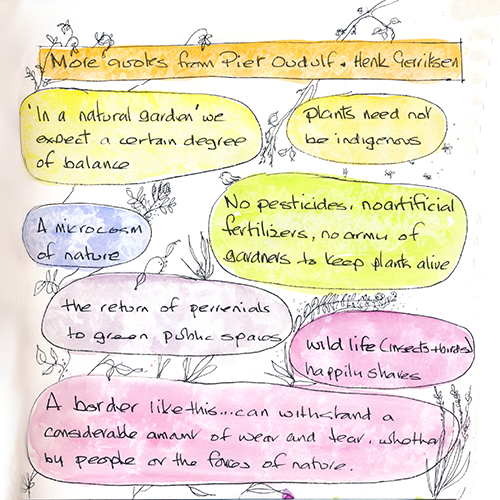 More quotes from Piet Oudulf + Henk Gerritsen
'In a natural garden' we
expect a certain degree
of balance
plants need not
be indigenous
No pesticides, no artificial
fertilizers, no army of
gardners to keep plants alive
A microcosm
of nature
the return of perrenials
to green public spaces
wild life (insects + birds)
happily shares
A border like this... can withstand a
considerable amount of wear and tear, whether
by people or the forces of nature.